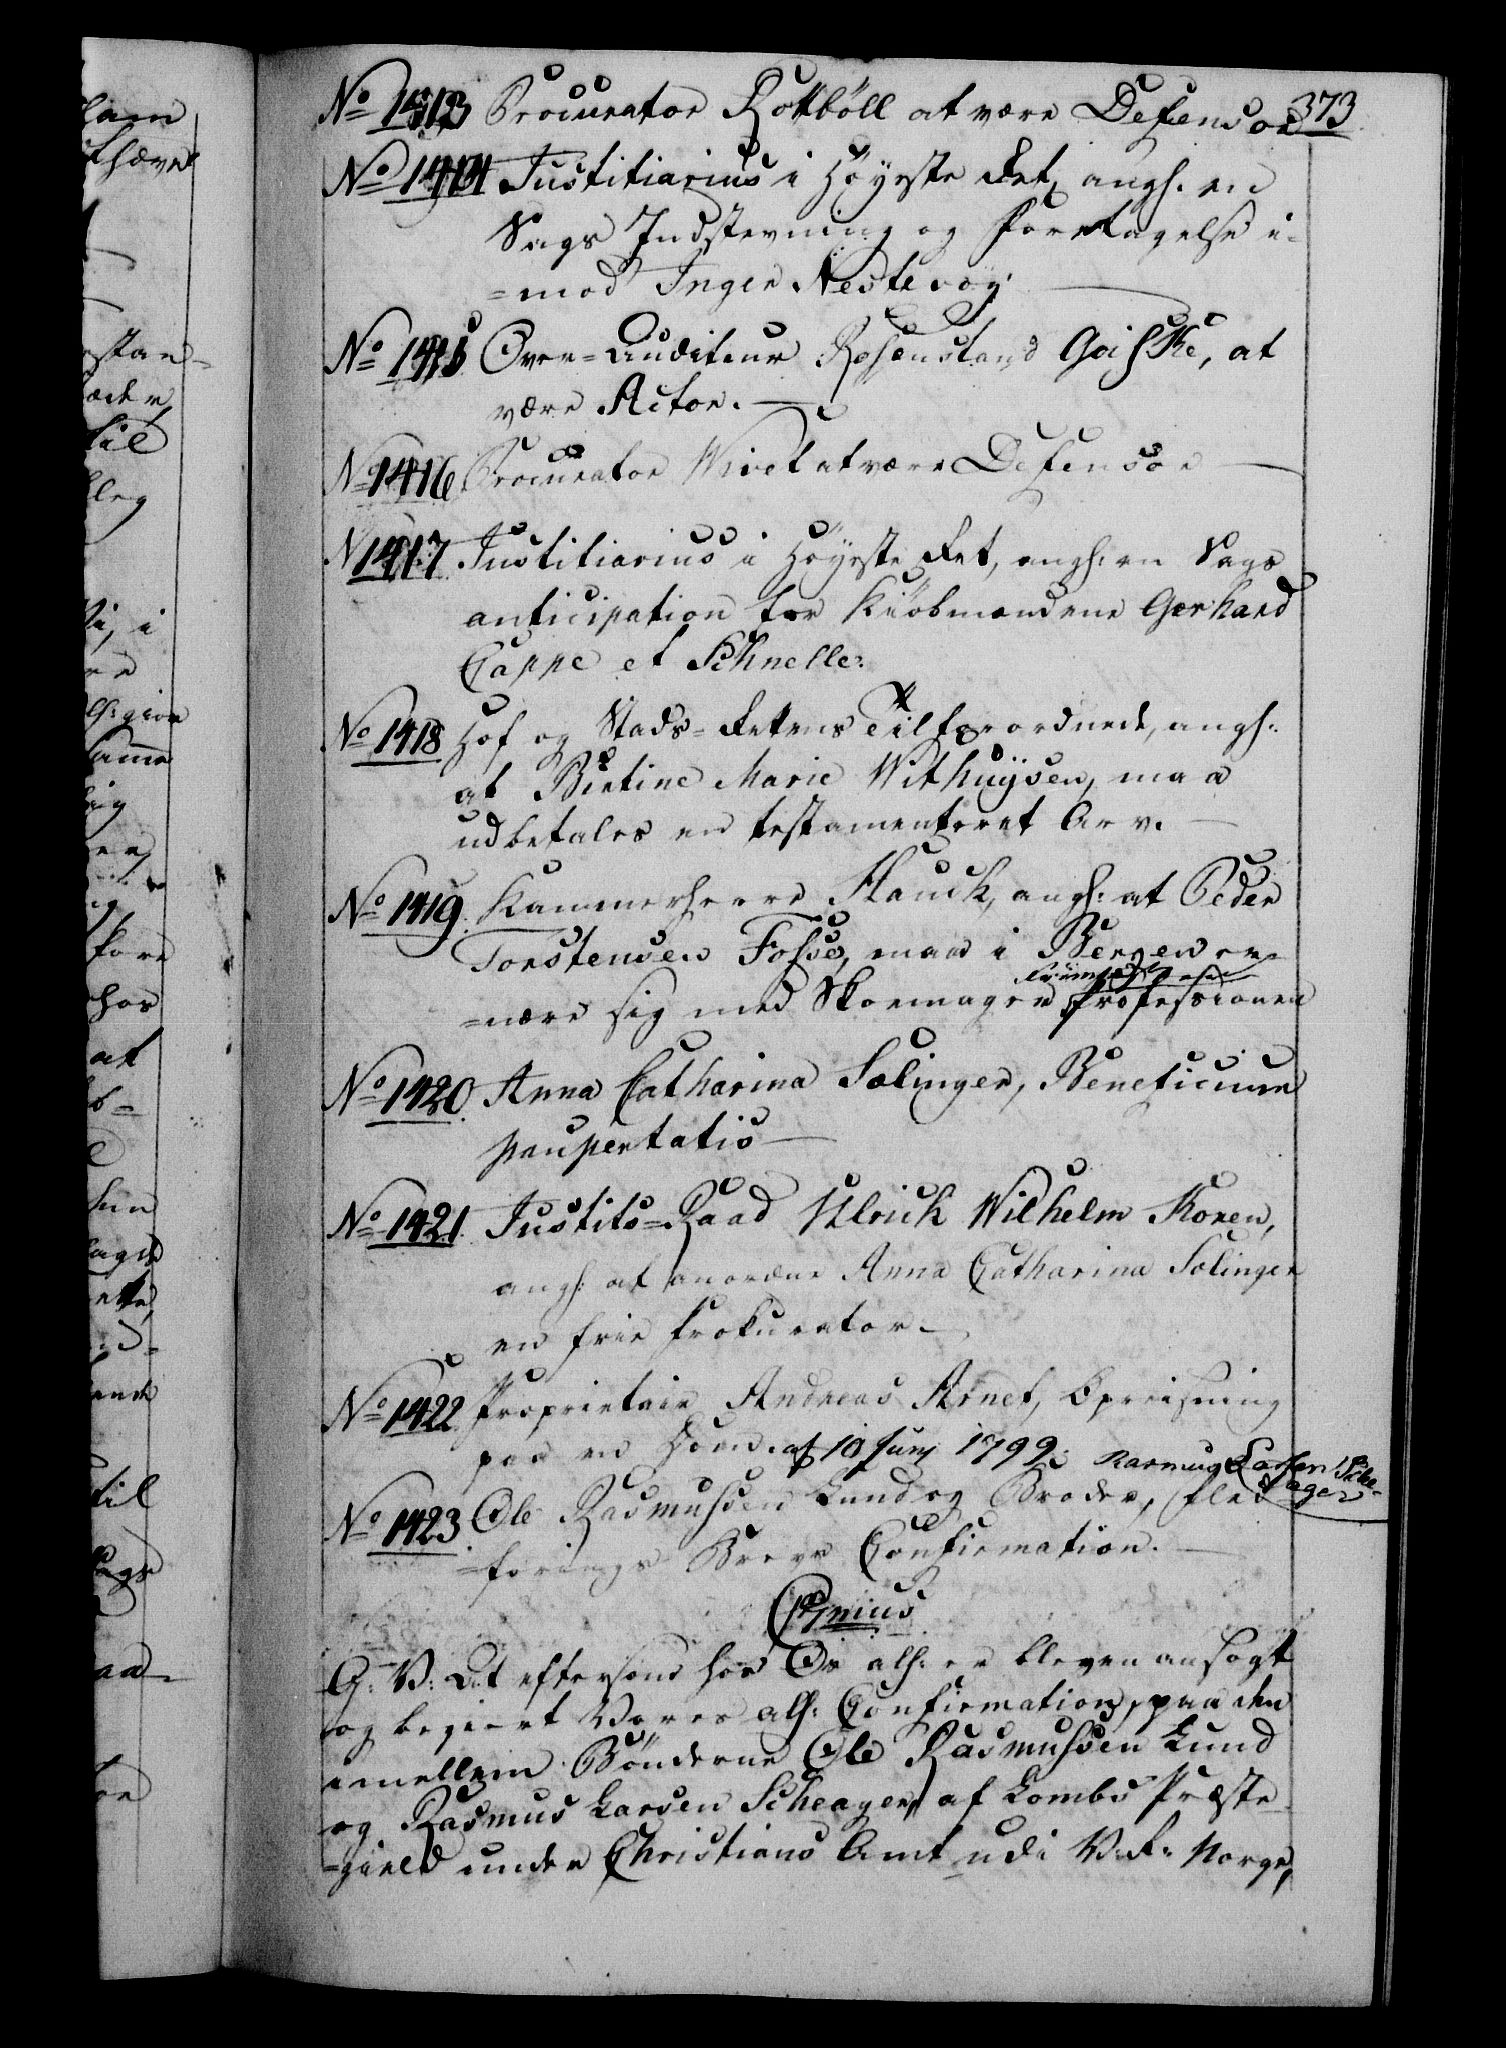 373
No 1413 Procurator Rottböll at være Defensor
No 1414 Justitiarius i Höyeste Ret, angh. en
Sags Indstevning og Foretagelse i-
=mod Inger Nestesöy.
No 1415 Over-Auditeur Rosenstand Goiske, at
være Actor.
No 1416 Procurator Wivet at være Defensor
No 1417 Justitiarius i Höyeste Ret, angh: en Sags
anticipation for Kiöbmændene Gerhard
Cappe et Schnelle.
No 1418 Hof og Stads-Rettens Tilforordnede, angh:
at Birtine Marie Withuysen, maa
udbetales en testamenteret Arv.
No 1419 Kammerherre Hauch, angh: at Peder
Torstensen Fosse, maa i Bergen er-
=nære sig med Skoemager Professionen
No 1420 Anna Catharina Solinger, Beneficium
paupertatis
No 1421 Justits-Raad Ulrich Wilhelm Koren,
angh: at anordne Anna Catharina Solinger
en frie Prokurator.
No 1422 Proprietair Andreas Arnet, Opreisning
paa en Dom af 10 Junj 1799.
Rasmus Larsen Sche-
ager
No 1423 Ole Rasmussen Lund og Broder, Fled-
=førings Brevs Confirmation.
C. 7mus
G: V: At eftersom hos Os alh: er bleven ansøgt
og begiert Vores alh: Confirmation, paa den
imellem Bönderne Ole Rasmussen Lund
og Rasmus Larsen Scheager, af Lombs Præste-
=gield under Christians Amt udi V: R: Norge,